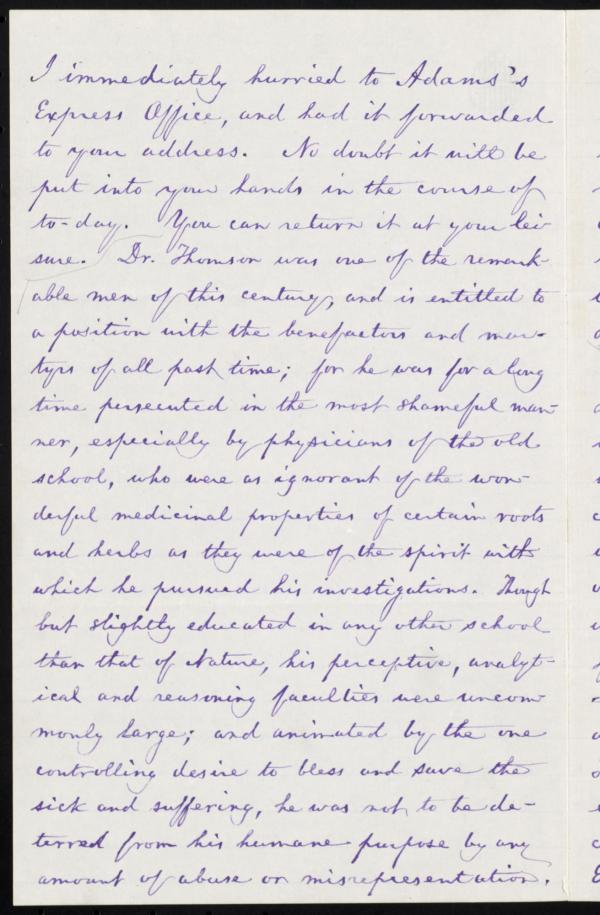 I immediately hurried to Adams's
Express Office, and had it forwarded
to your address. No doubt it will be
put into your hands in the course of
to-day. You can return it at your lei
sure. Dr. Thomson was one of the remark-
able men of this century, and is entitled to
a position with the benefactors and mar-
tyrs of all past time; for he was for a long
time persecuted in the most shameful man-
ner, especially by physicians of the old
school, who were as ignorant of the won-
derful medicinal properties of certain roots
and herbs as they were of the spirit with
which he pursued his investigations. Though
but slightly educated in any other school
than that of Nature, his perceptive, analyt-
ical and reasoning faculties were uncom-
monly large; and animated by the one
controlling desire to bless and save the
sick and suffering, he was not to be de-
terred from his humane purpose by any
amount of abuse or misrepresentation.